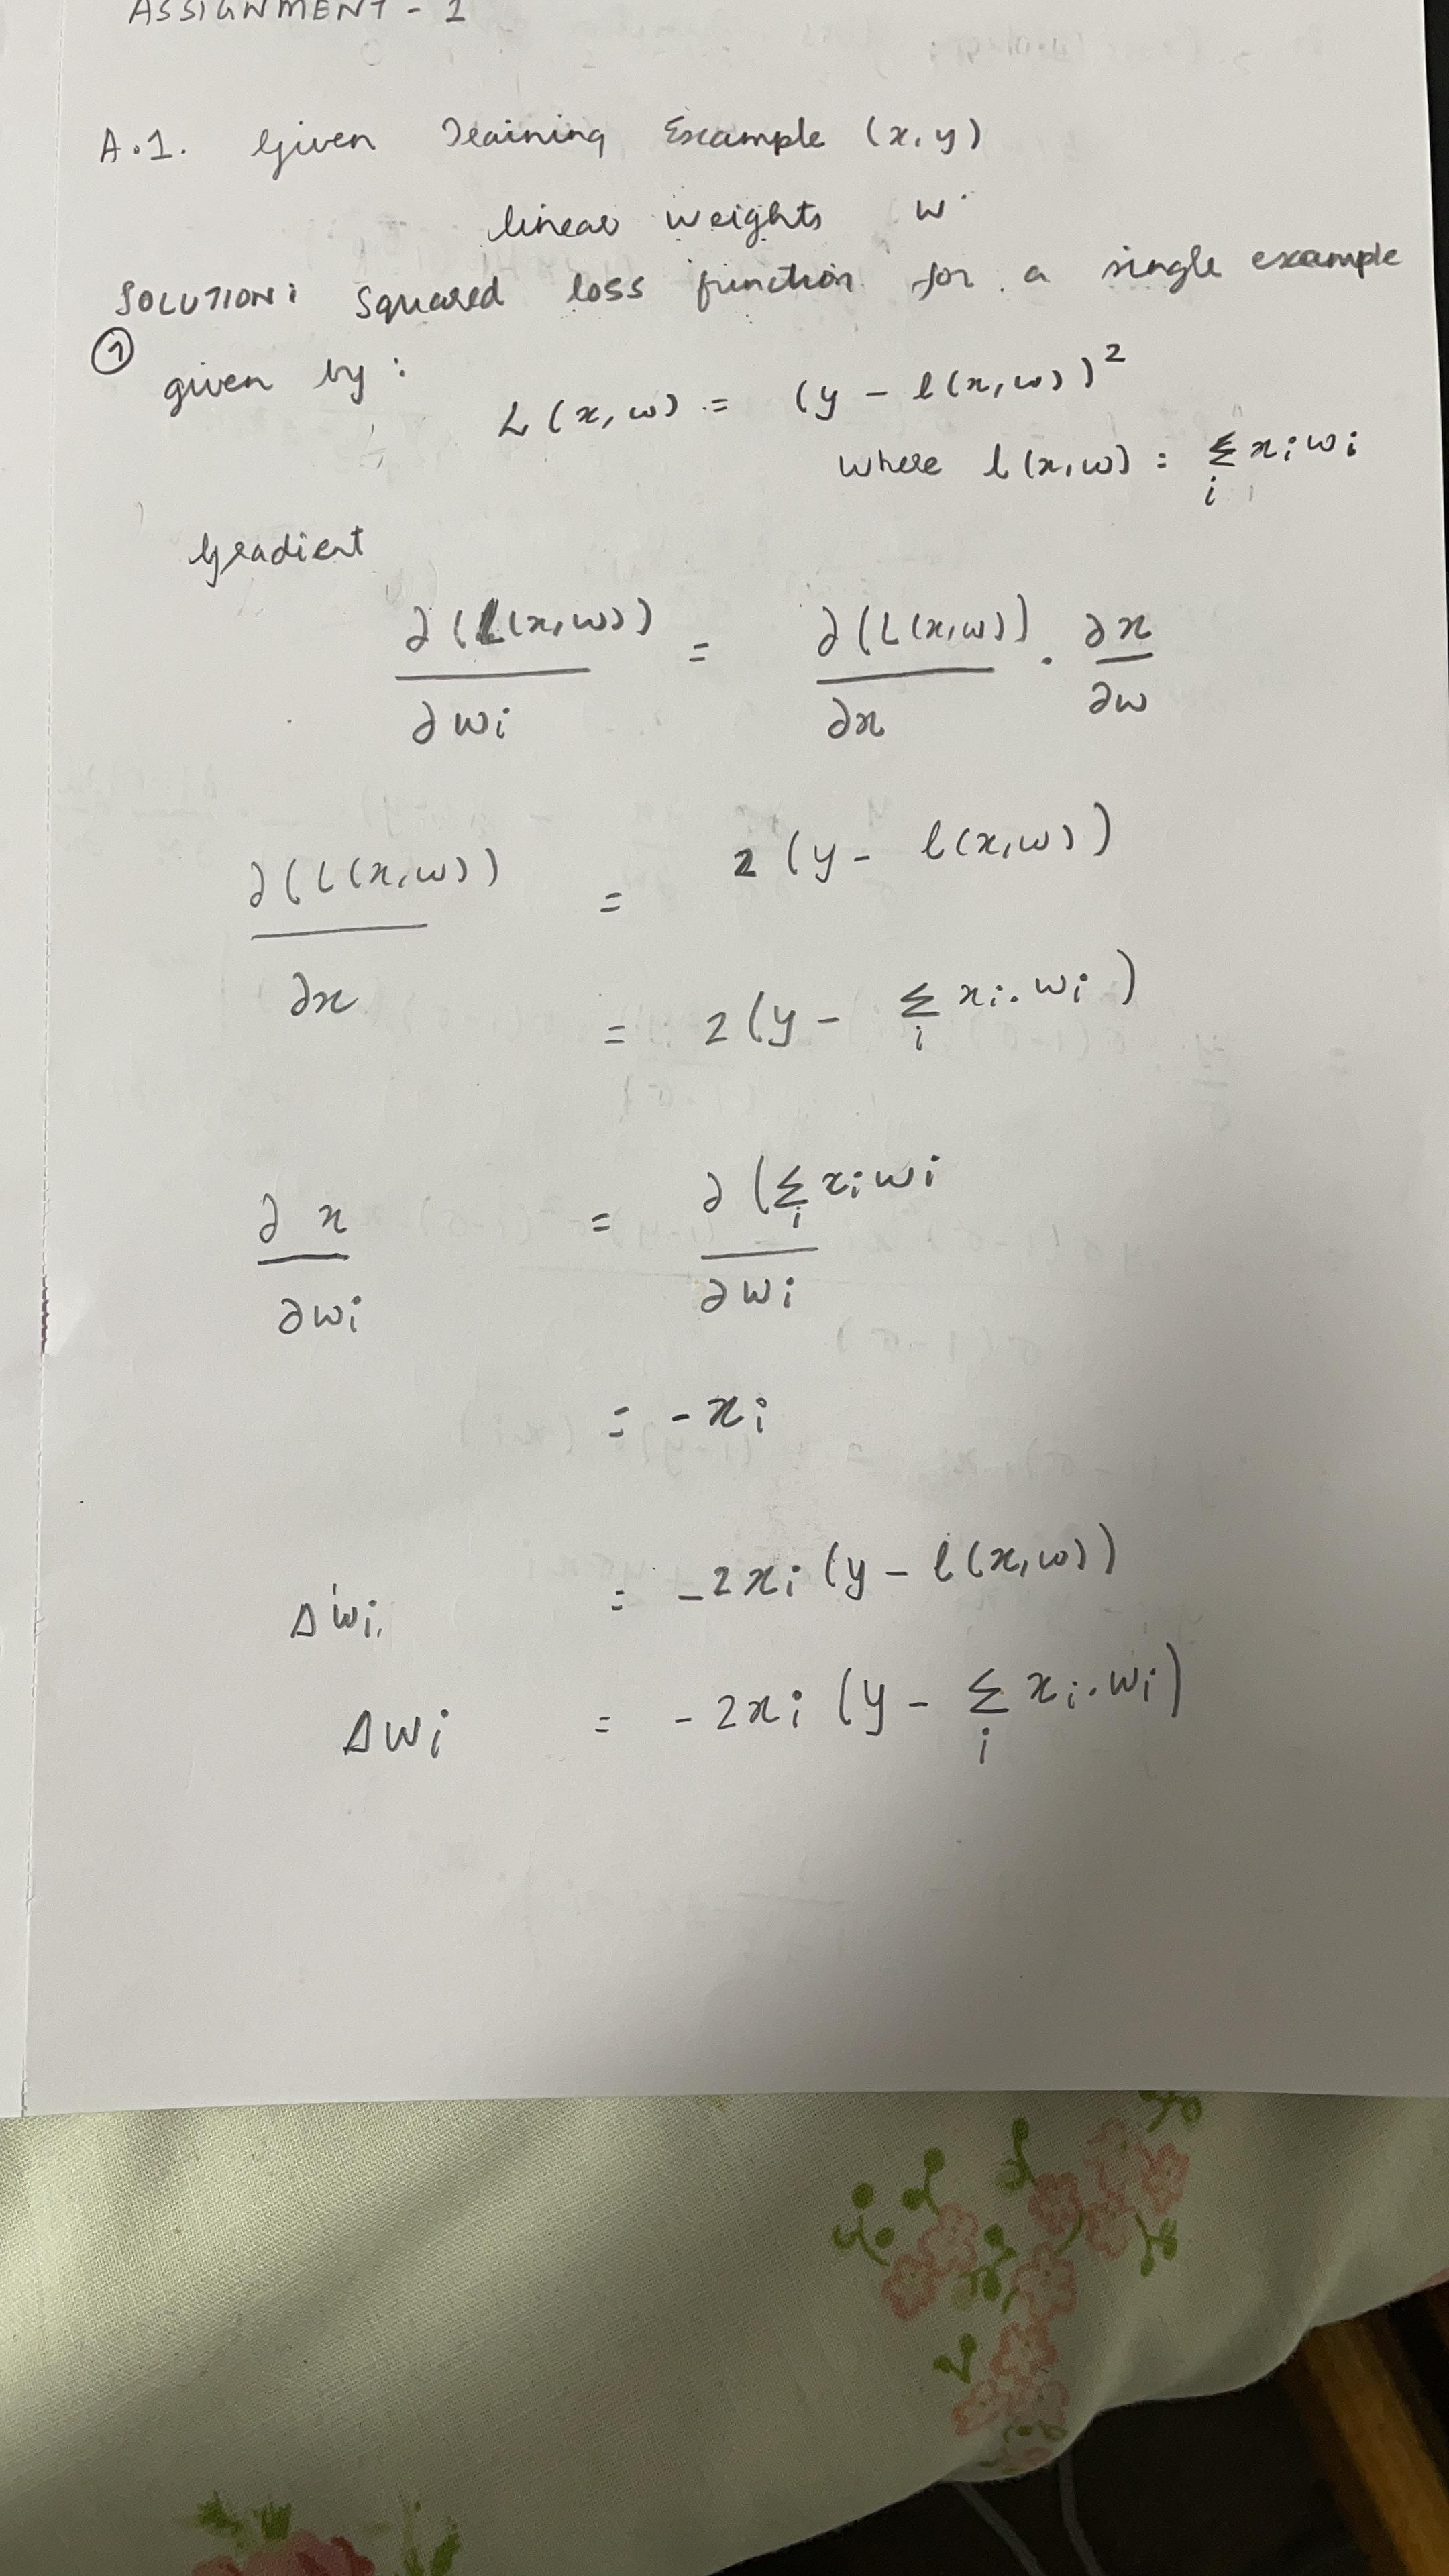 ASSIGNMENT - 2
A.1. Given Training Example (x,y)
linear weights w
SOLUTION: Squared loss function for a single example
① given by: L(x,w) = (y - l(x,w))²
where l(x,w) = Σᵢ xᵢwᵢ
Gradient
∂(L(x,w))/∂wᵢ = ∂(L(x,w))/∂x . ∂x/∂w
∂(L(x,w))/∂x = 2(y - l(x,w))
= 2(y - Σᵢ xᵢ.wᵢ)
∂x/∂wᵢ = ∂(Σᵢ xᵢwᵢ/∂wᵢ
= -xᵢ
Δwᵢ = -2xᵢ(y - l(x,w))
Δwᵢ = -2xᵢ(y - Σᵢ xᵢ.wᵢ)